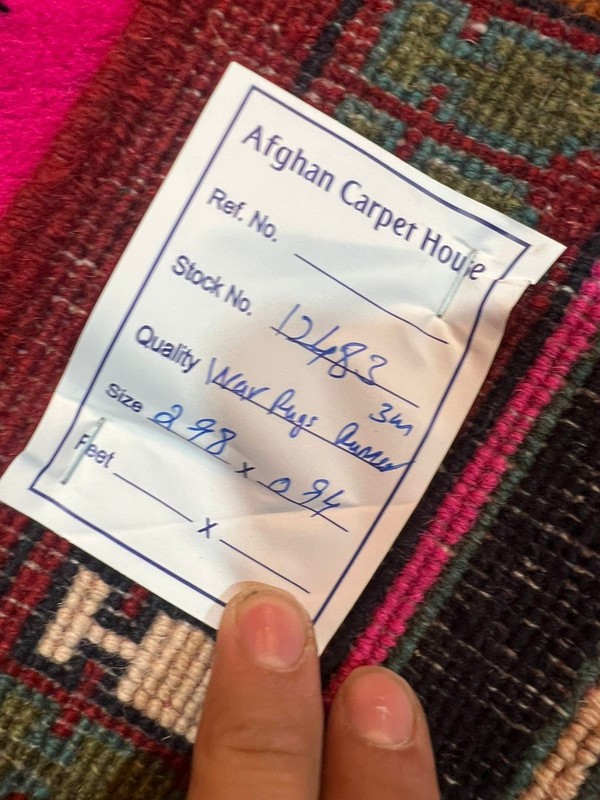 Afghan Carpet House
Ref. No.
Stock No. 12483
Quality War Rugs Runner 3m
Size 298 x 094
Feet x